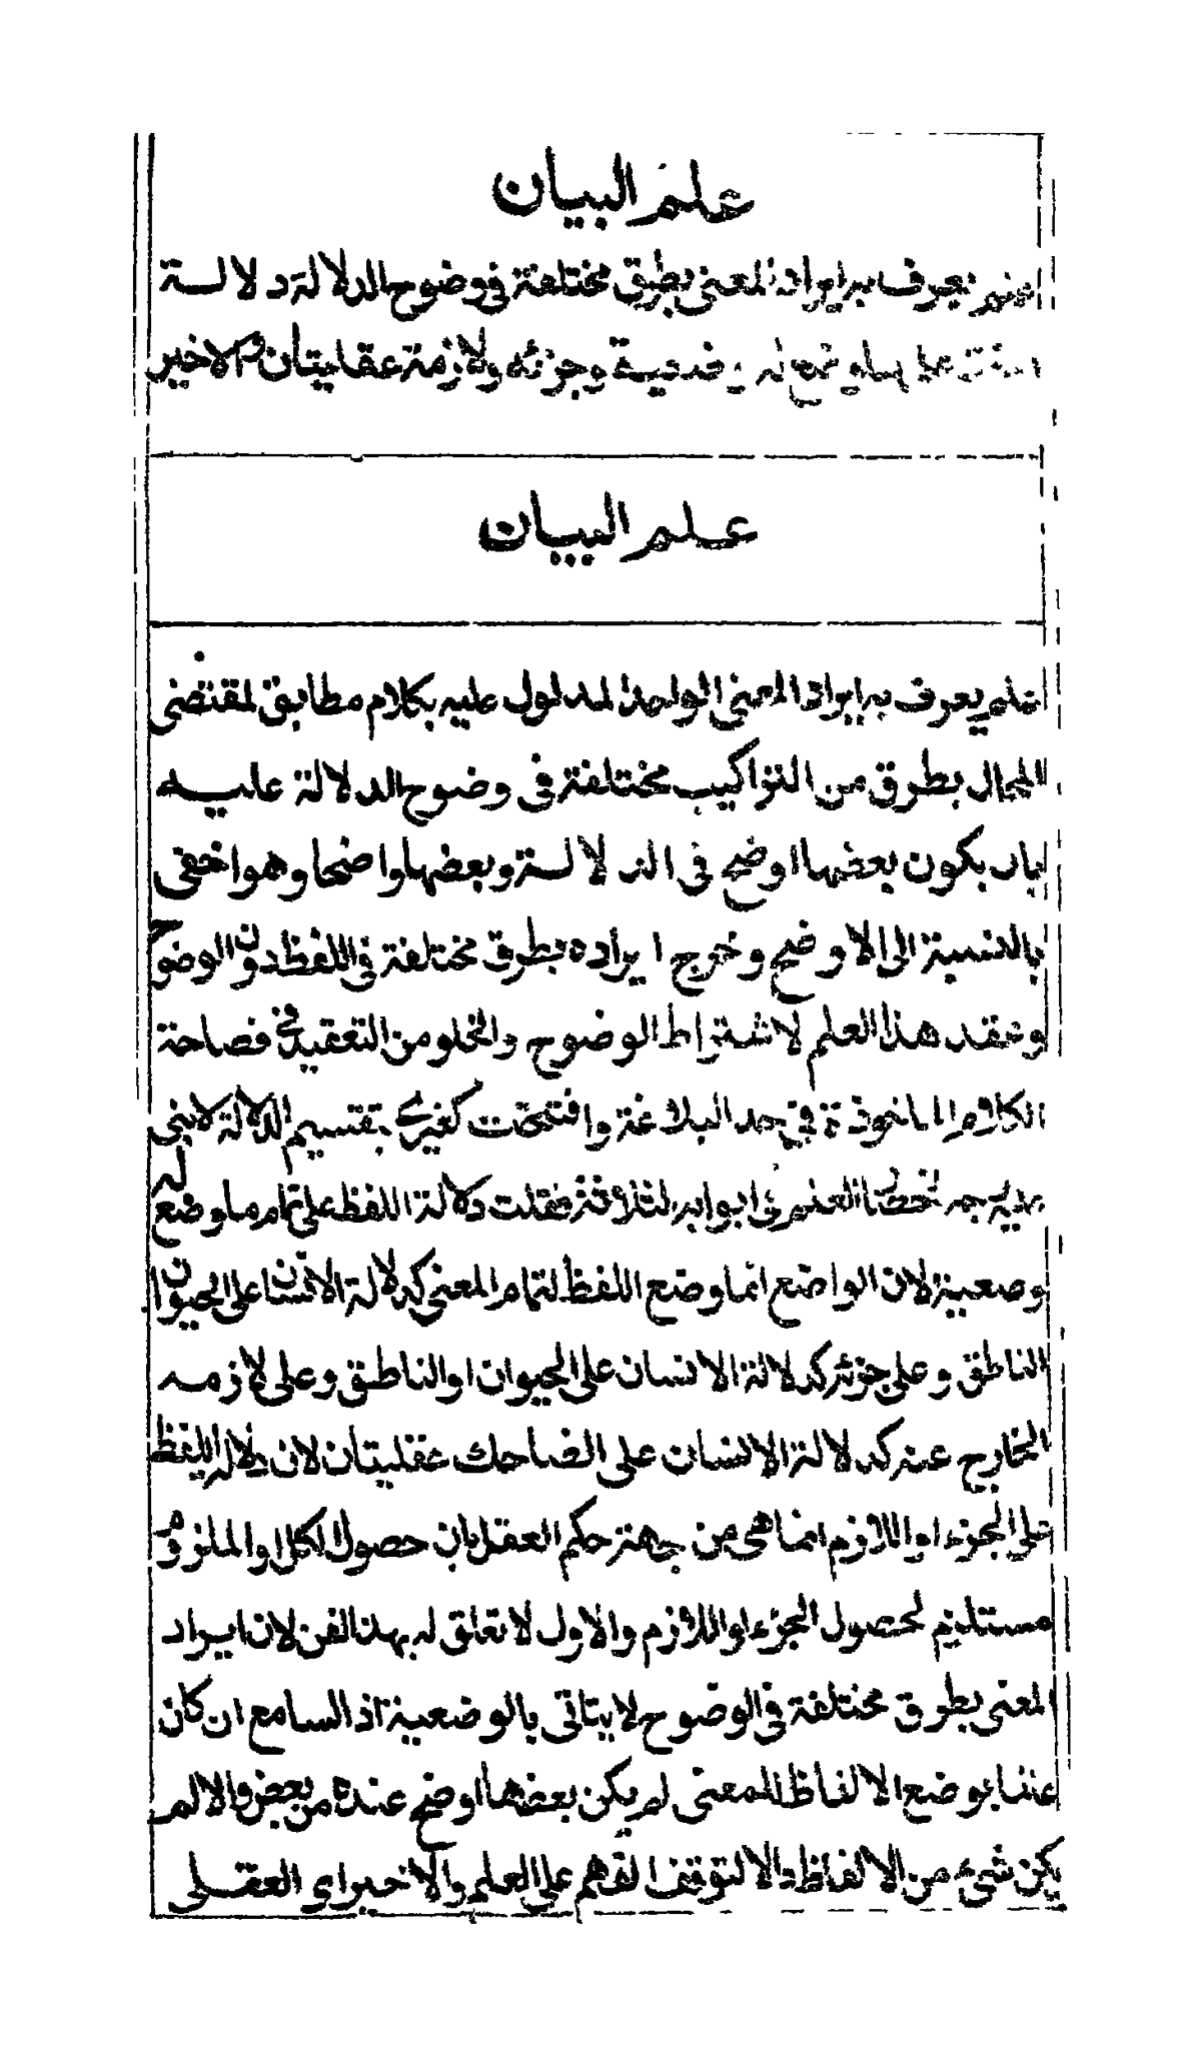 علم البيان
علم يعرف به ايراد المعنى بطرق مختلفة في وضوح الدلالة دلالة
على ما وضع له وضعية وجزئه ولازمه عقليتان والاخير
علم البيان
علم يعرف به ايراد المعنى الواحد المدلول عليه بكلام مطابق لمقتضى
الحال بطرق من التراكيب مختلفة في وضوح الدلالة عليه
بان يكون بعضها اوضح في الدلالة وبعضها واضحا وهو اخفى
بالنسبة الى الاوضح وخرج ايراده بطرق مختلفة في اللفظ دون الوضوح
هذا العلم لاشتراط الوضوح والخلو من التعقيد في فصاحة
الكلام الماخوذة في حد البلاغة وافتتحت كغيري بتقسيم الدلالة لابني
ابوابه الثلاثة فقلت دلالة اللفظ على تمام ما وضع له
وضعية لان الواضع انما وضع اللفظ لتمام المعنى كدلالة الانسان على الحيوان
الناطق وعلى جزئه كدلالة الانسان على الحيوان او الناطق وعلى لازمه
الخارج عنه كدلالة الانسان على الضاحك عقليتان لان دلالة اللفظ
على الجزء او اللازم انما هي من جهة حكم العقل بان حصول الكل او الملزوم
مستلزم لحصول الجزء او اللازم والاول لا تعلق له بهذا الفن لان ايراد
المعنى بطرق مختلفة في الوضوح لا يتاتى بالوضعية اذ السامع ان كان
عالما بوضع الالفاظ للمعنى لم يكن بعضها اوضح عنده من بعض والا لم
يكن شيء من الالفاظ دالا لتوقف الفهم على العلم والاخير اي العقلي